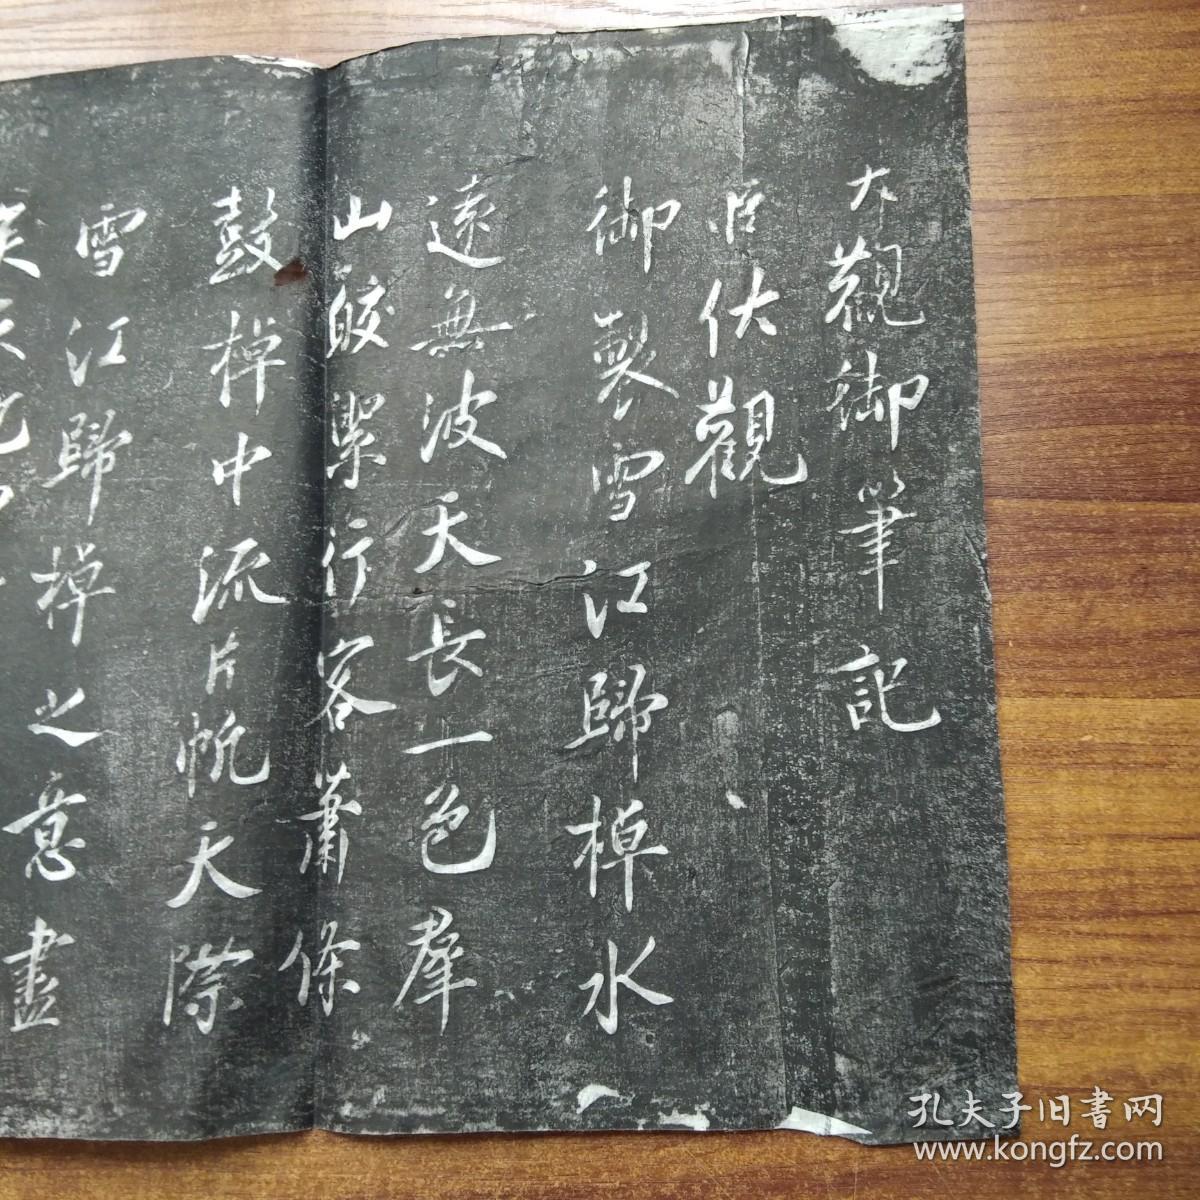 大觀御筆記
臣伏觀
御製雪江歸棹水
遠無波天長一色羣
山皎潔行客蕭條
鼓棹中流片帆天際
雪江歸棹之意盡
矣
孔夫子旧書网
www.kongfz.com